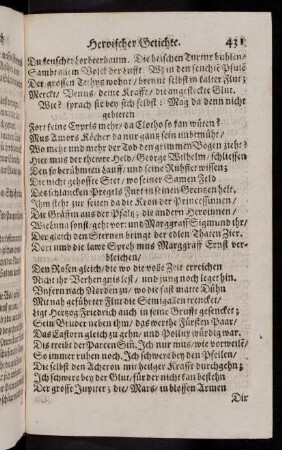 Heroischer Getichte. 431
Du keuscher Lorbeerbaum. Die heischen Tnymr buhlen/
Sambt allem Volck der duffte. Wo in den feuchte Pfulē
Der grossen Tethys wohnt / brenne selbst in kalter Flut;
Mercke/ Venus/ deine Krafft/ die angesteckte Glut.
Wie? sprach sie bey sich selbst: Mag da denn nicht
gebieten
Fort keine Cypris mehr/ da Clotho so kan wüten?
Mus Amors Köcher da nur gantz sein unbemüht/
Wo mehr und mehr der Tod den grimmen Bogen zieht?
Hier mus der thewre Held/ George Wilhelm/ schliessen
Den so berühmten Lauff/ und seine Ruhstet wissen;
Die nicht gehoffte Stet/ wo seiner Samen Feld
Des schlancken Pregels Furt in seinen Grentzen helt.
Ihm steht zur seiten da die Kron der Princessinnen/
Die Gräffin aus der Pfaltz; die andern Heroinnen/
Wie sonst sonst/ geht vor; und Marggraff Sigmund ihr/
Der gleich den Sternen bringt der edlen Thaten Zier.
Der und die lawe Spreh mus Marggraff Ernst ver-
bleichen/
Den Rosen gleich/ die wo die volle Zeit erreichen
Nicht ihr Verhengnis lest/ und jung noch leget hin.
Unsern nach Norden zu/ wo die fast matte Dühn
Mit nah geführter Flut die Semigallen trencket/
ligt Hertzog Friedrich auch in seine Grufft gesencket;
Sein Bruder neben ihm/ das werthe Fürsten Paar/
Das Castorn gleich zu gehn/ und Pollux würdig war.
Dis treibt der Parcen Siñ. Ich nur mus/ wie vorweilē/
So immer ruhen noch. Ich schwere bey den Pfeilen/
Die selbst den Acheron mit heisser Krafft durchgehn;
Ich schwere bey der Glut/ für der nicht kan bestehn
Der grosse Jupiter; die/ Mars/ in blossen Armen
Dir